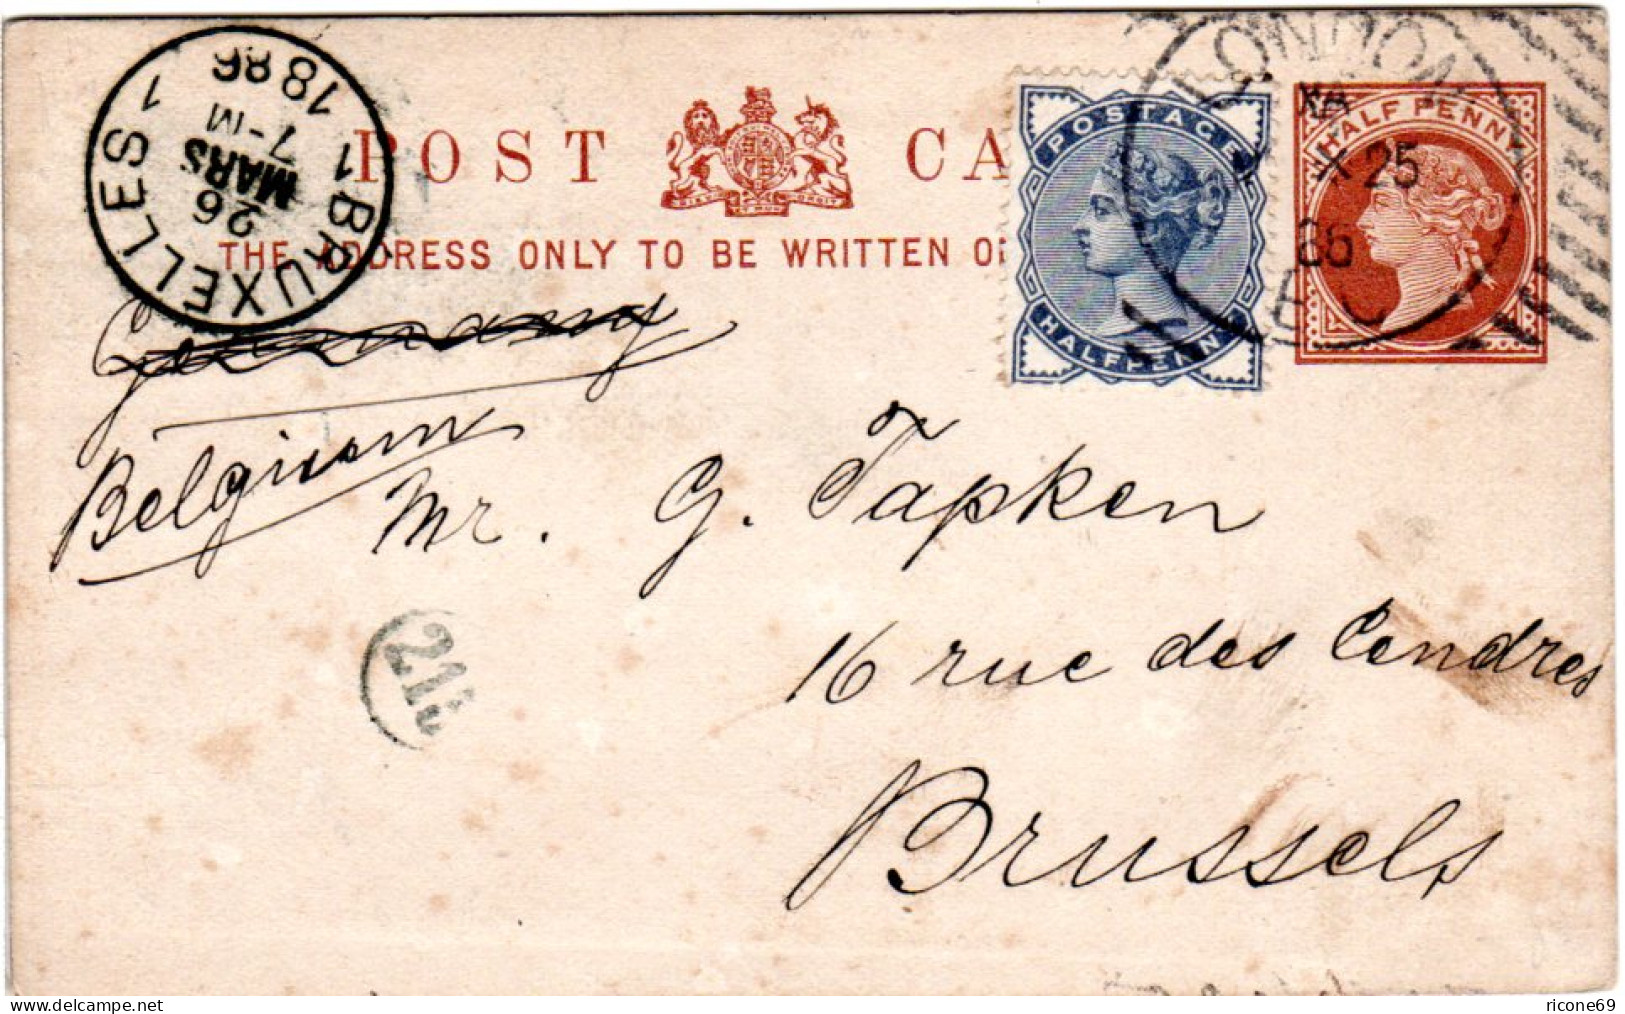 POST CA
THE ADDRESS ONLY TO BE WRITTEN O
BRUXELLES 1
26
MARS
7-M
1886
LONDON
25
86
E.C
POSTAGE
HALFPENNY
HALF PENNY
Germany
Belgium
Mr. G. Tapken
16 rue des Cendres
Brussels
21
delcampe.net
ricone69